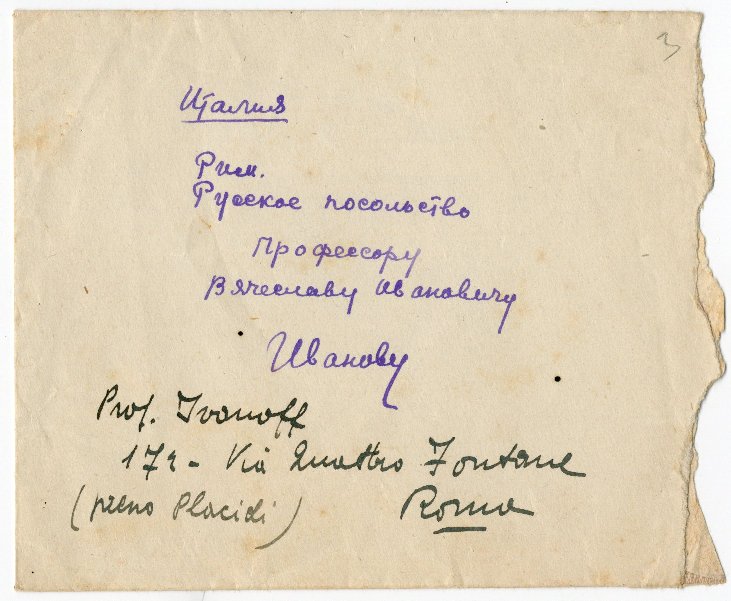 3
Италия
Рим.
Русское посольство
Профессору
Вячеславу Ивановичу
Иванову
Prof. Ivanoff
172 - Via Quattro Fontane
(preno Placidi) Roma